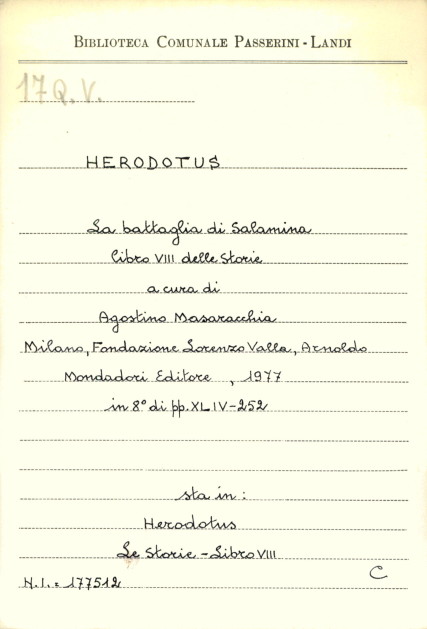 BIBLIOTECA COMUNALE PASSERINI - LANDI
17 Q. V.
HERODOTUS
La battaglia di Salamina
libro VIII delle Storie
a cura di
Agostino Masaracchia
Milano, Fondazione Lorenzo Valla, Arnoldo
Mondadori Editore , 1977
in 8° di pp. XLIV-252
sta in :
Herodotus
Le Storie - Libro VIII
N.I. = 177512
C